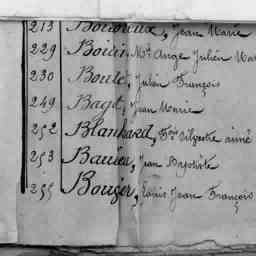 213 Boudoux, Jean Marie
229 Boivin, Me Ange Julien Mar
230 Boulé, Julien François
249 Bagot, Jean Marie
252 Blanchard, Fois Silvestre aimé
253 Baudea, Jean Baptiste
255 Bouger, Louis Jean François